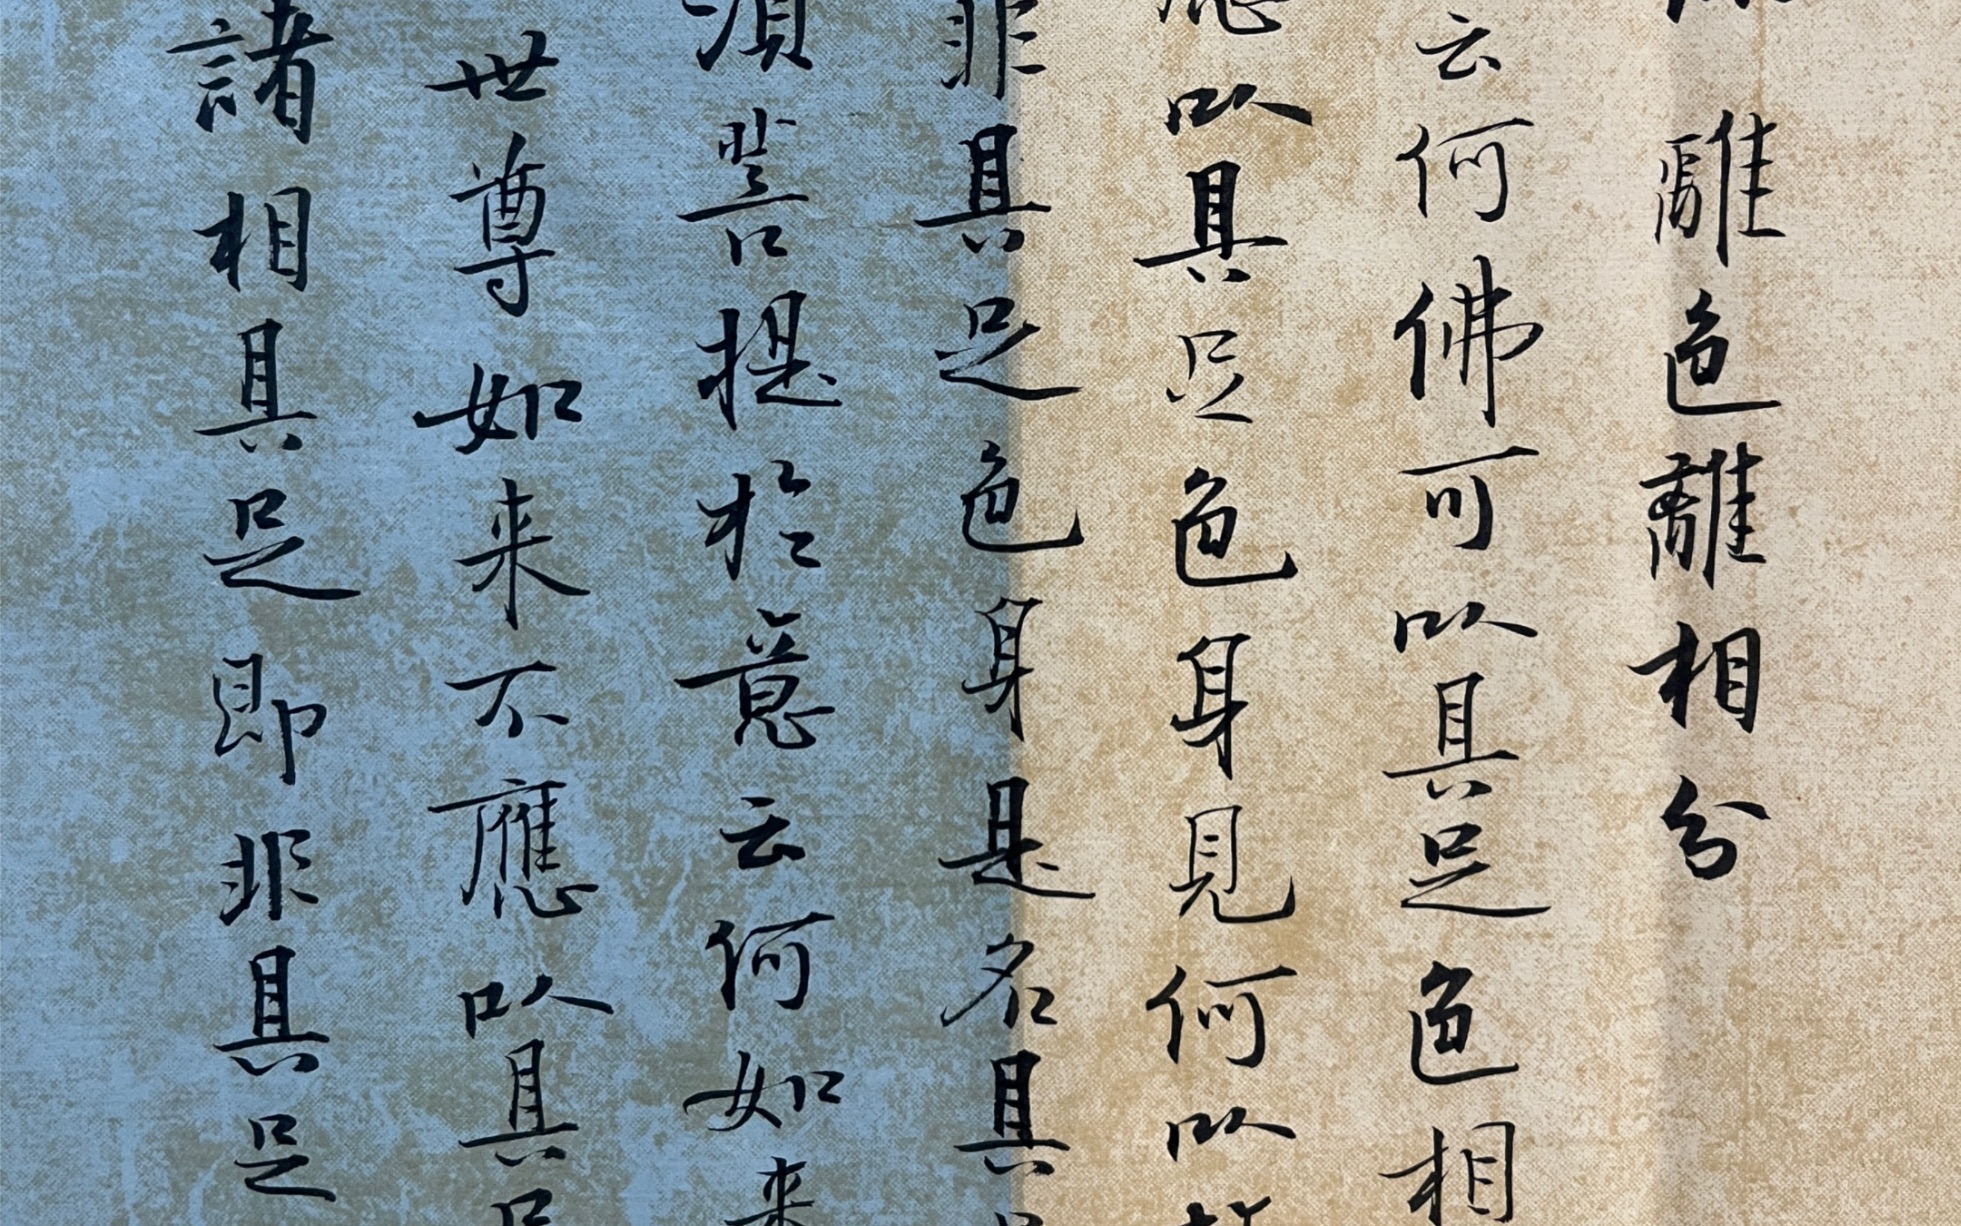 離色離相分
云何佛可以具足色相
應以具足色身見何以故
非具足色身是名具足
須菩提於意云何如来
世尊如来不應以具足
諸相具足即非具足